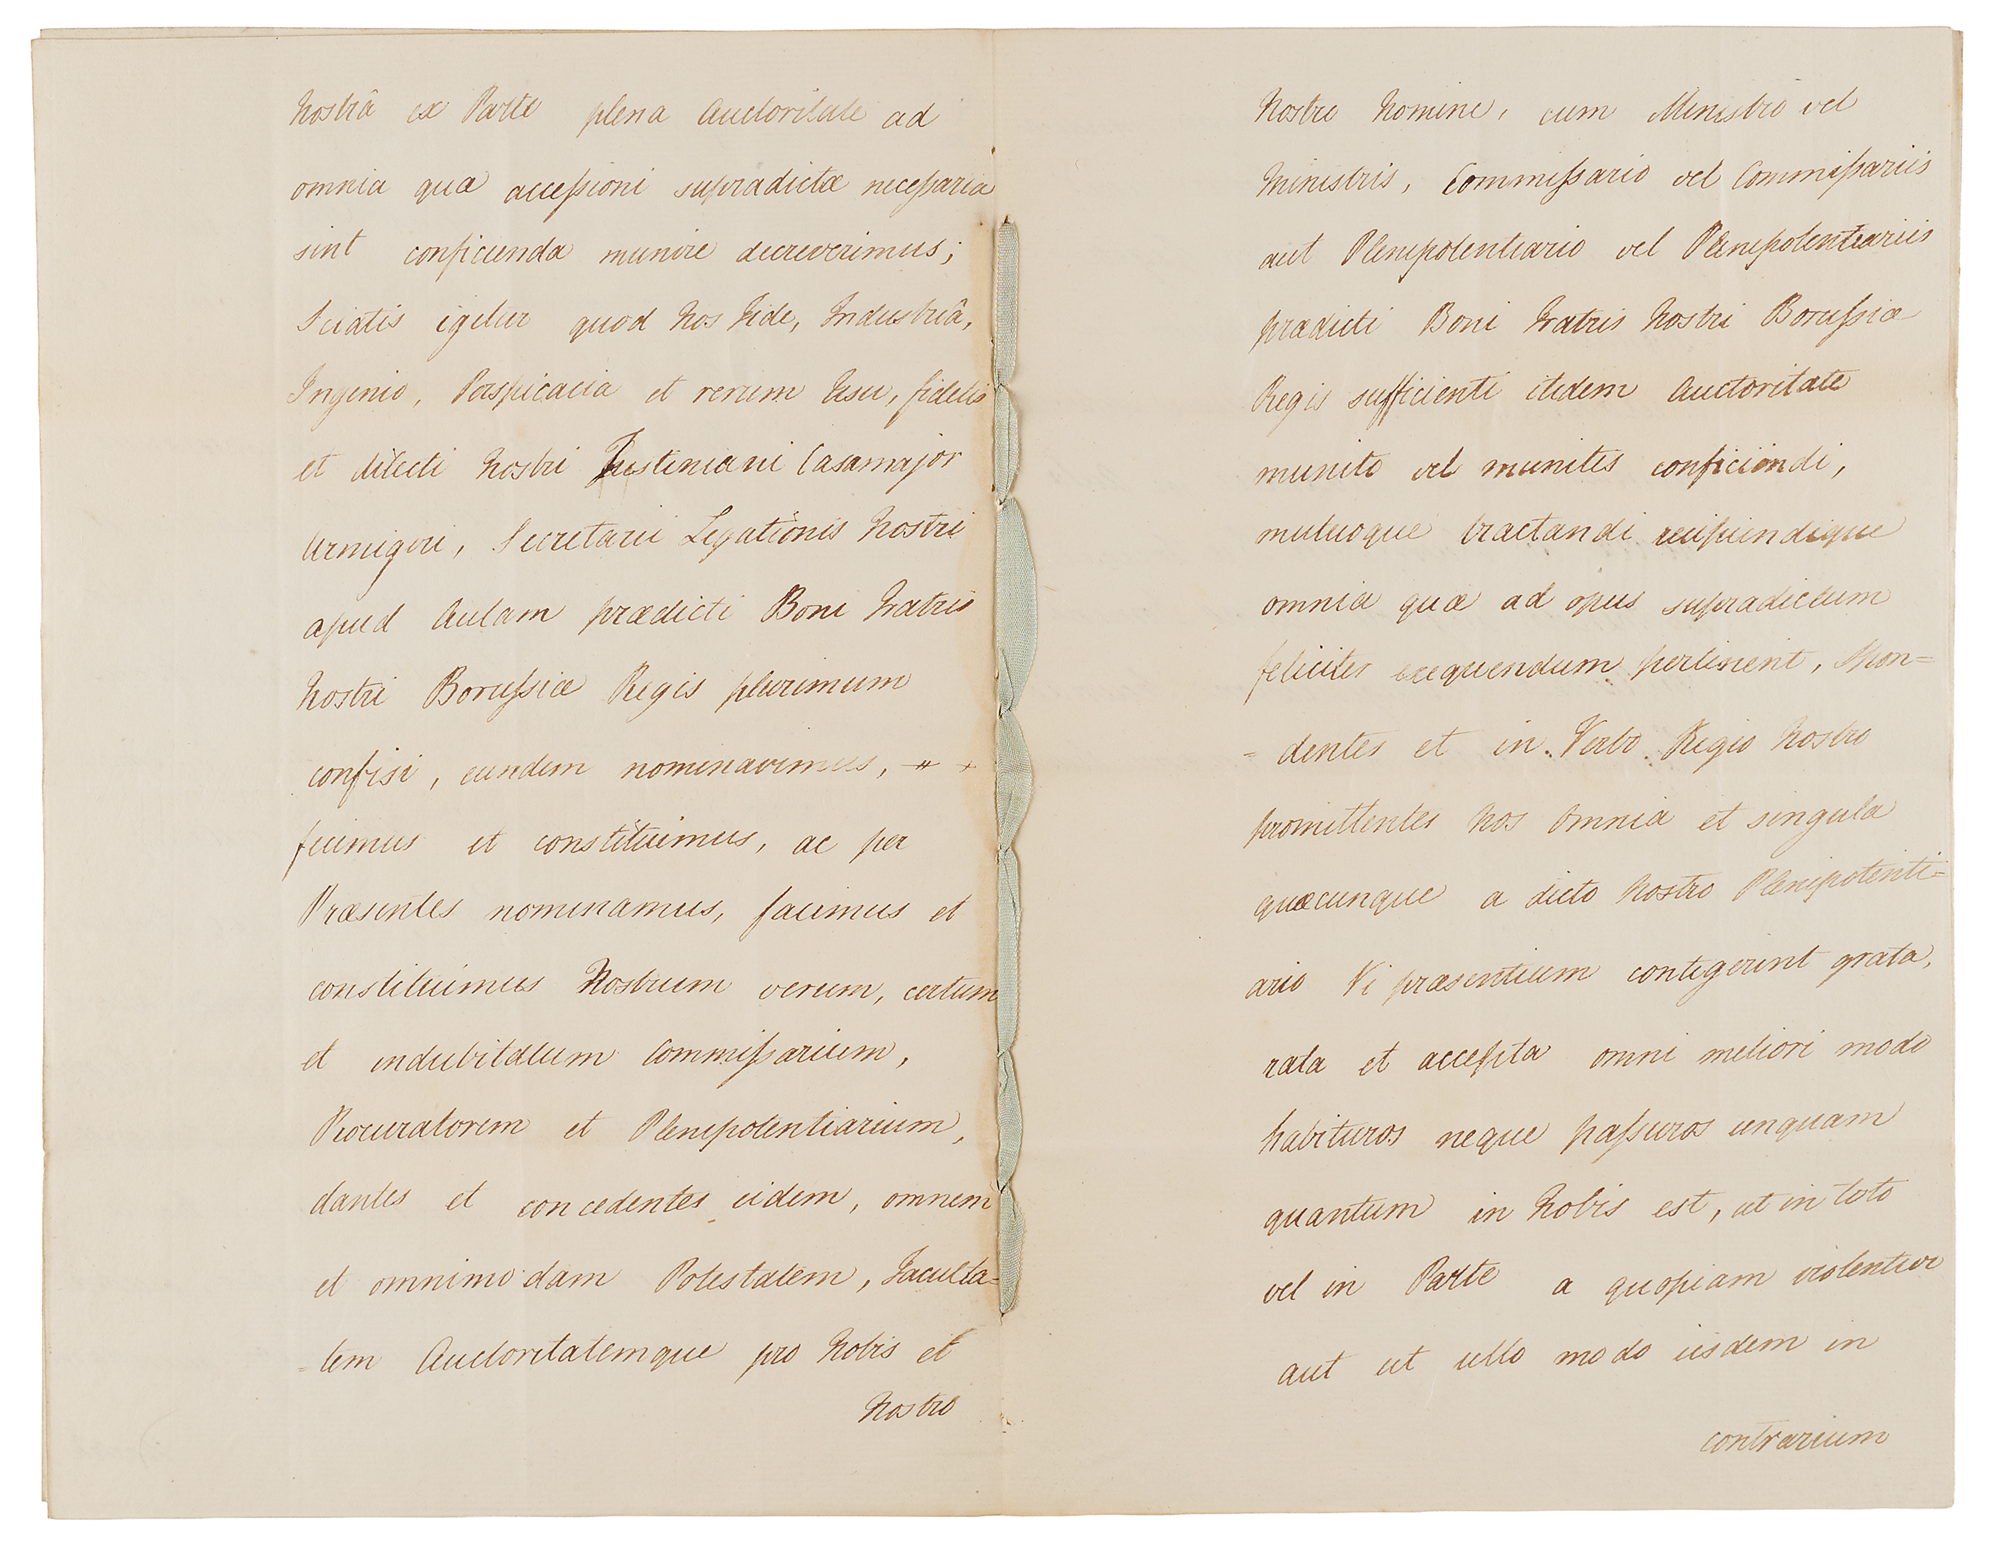 Nostrâ ex Parte plena Auctoritate ad
omnia quæ accessioni supradictæ necessaria
sint conficienda munire decreverimus;
Sciatis igitur quod Nos Fide, Industriâ,
Ingenio, Perspicacia et rerum Usu, fidelis
et dilecti Nostri Justiniani Casamajor
Armigeri, Secretarii Legationis Nostri
apud Aulam prædicti Boni Fratris
Nostri Borussiæ Regis plurimum
confisi, eundem nominavimus,
fecimus et constituimus, ac per
Præsentes nominamus, facimus et
constituimus Nostrum verum, certum
et indubitatum Commissarium,
Procuratorem et Plenipotentiarium,
dantes et concedentes eidem, omnem
et omnimodam Potestatem, Faculta=
=tem Auctoritatemque pro Nobis et
Nostro
Nostro Nomine, cum Ministro vel
Ministris, Commissario vel Commissariis
aut Plenipotentiario vel Plenipotentiariis
prædicti Boni Fratris Nostri Borussiæ
Regis sufficienti itidem Auctoritate
munito vel munitis conficiendi,
mutuoque tractandi recipiendique
omnia quæ ad opus supradictum
feliciter exequendum pertinent, Spon=
=dentes et in Verbo Regio Nostro
promittentes Nos Omnia et singula
quæcunque a dicto Nostro Plenipotenti=
ario Vi præsentium contigerint grata,
rata et accepta omni meliori modo
habituros neque passuros unquam
quantum in Nobis est, ut in toto
vel in Parte a quopiam violentur
aut ut ullo modo iisdem in
contrarium